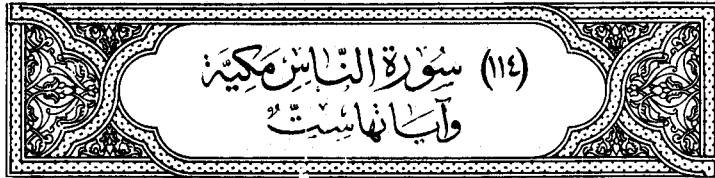 (١١٤) سُورَة النَّاسِ مَكيَّة
وَآيَاتهَا سِتٌّ